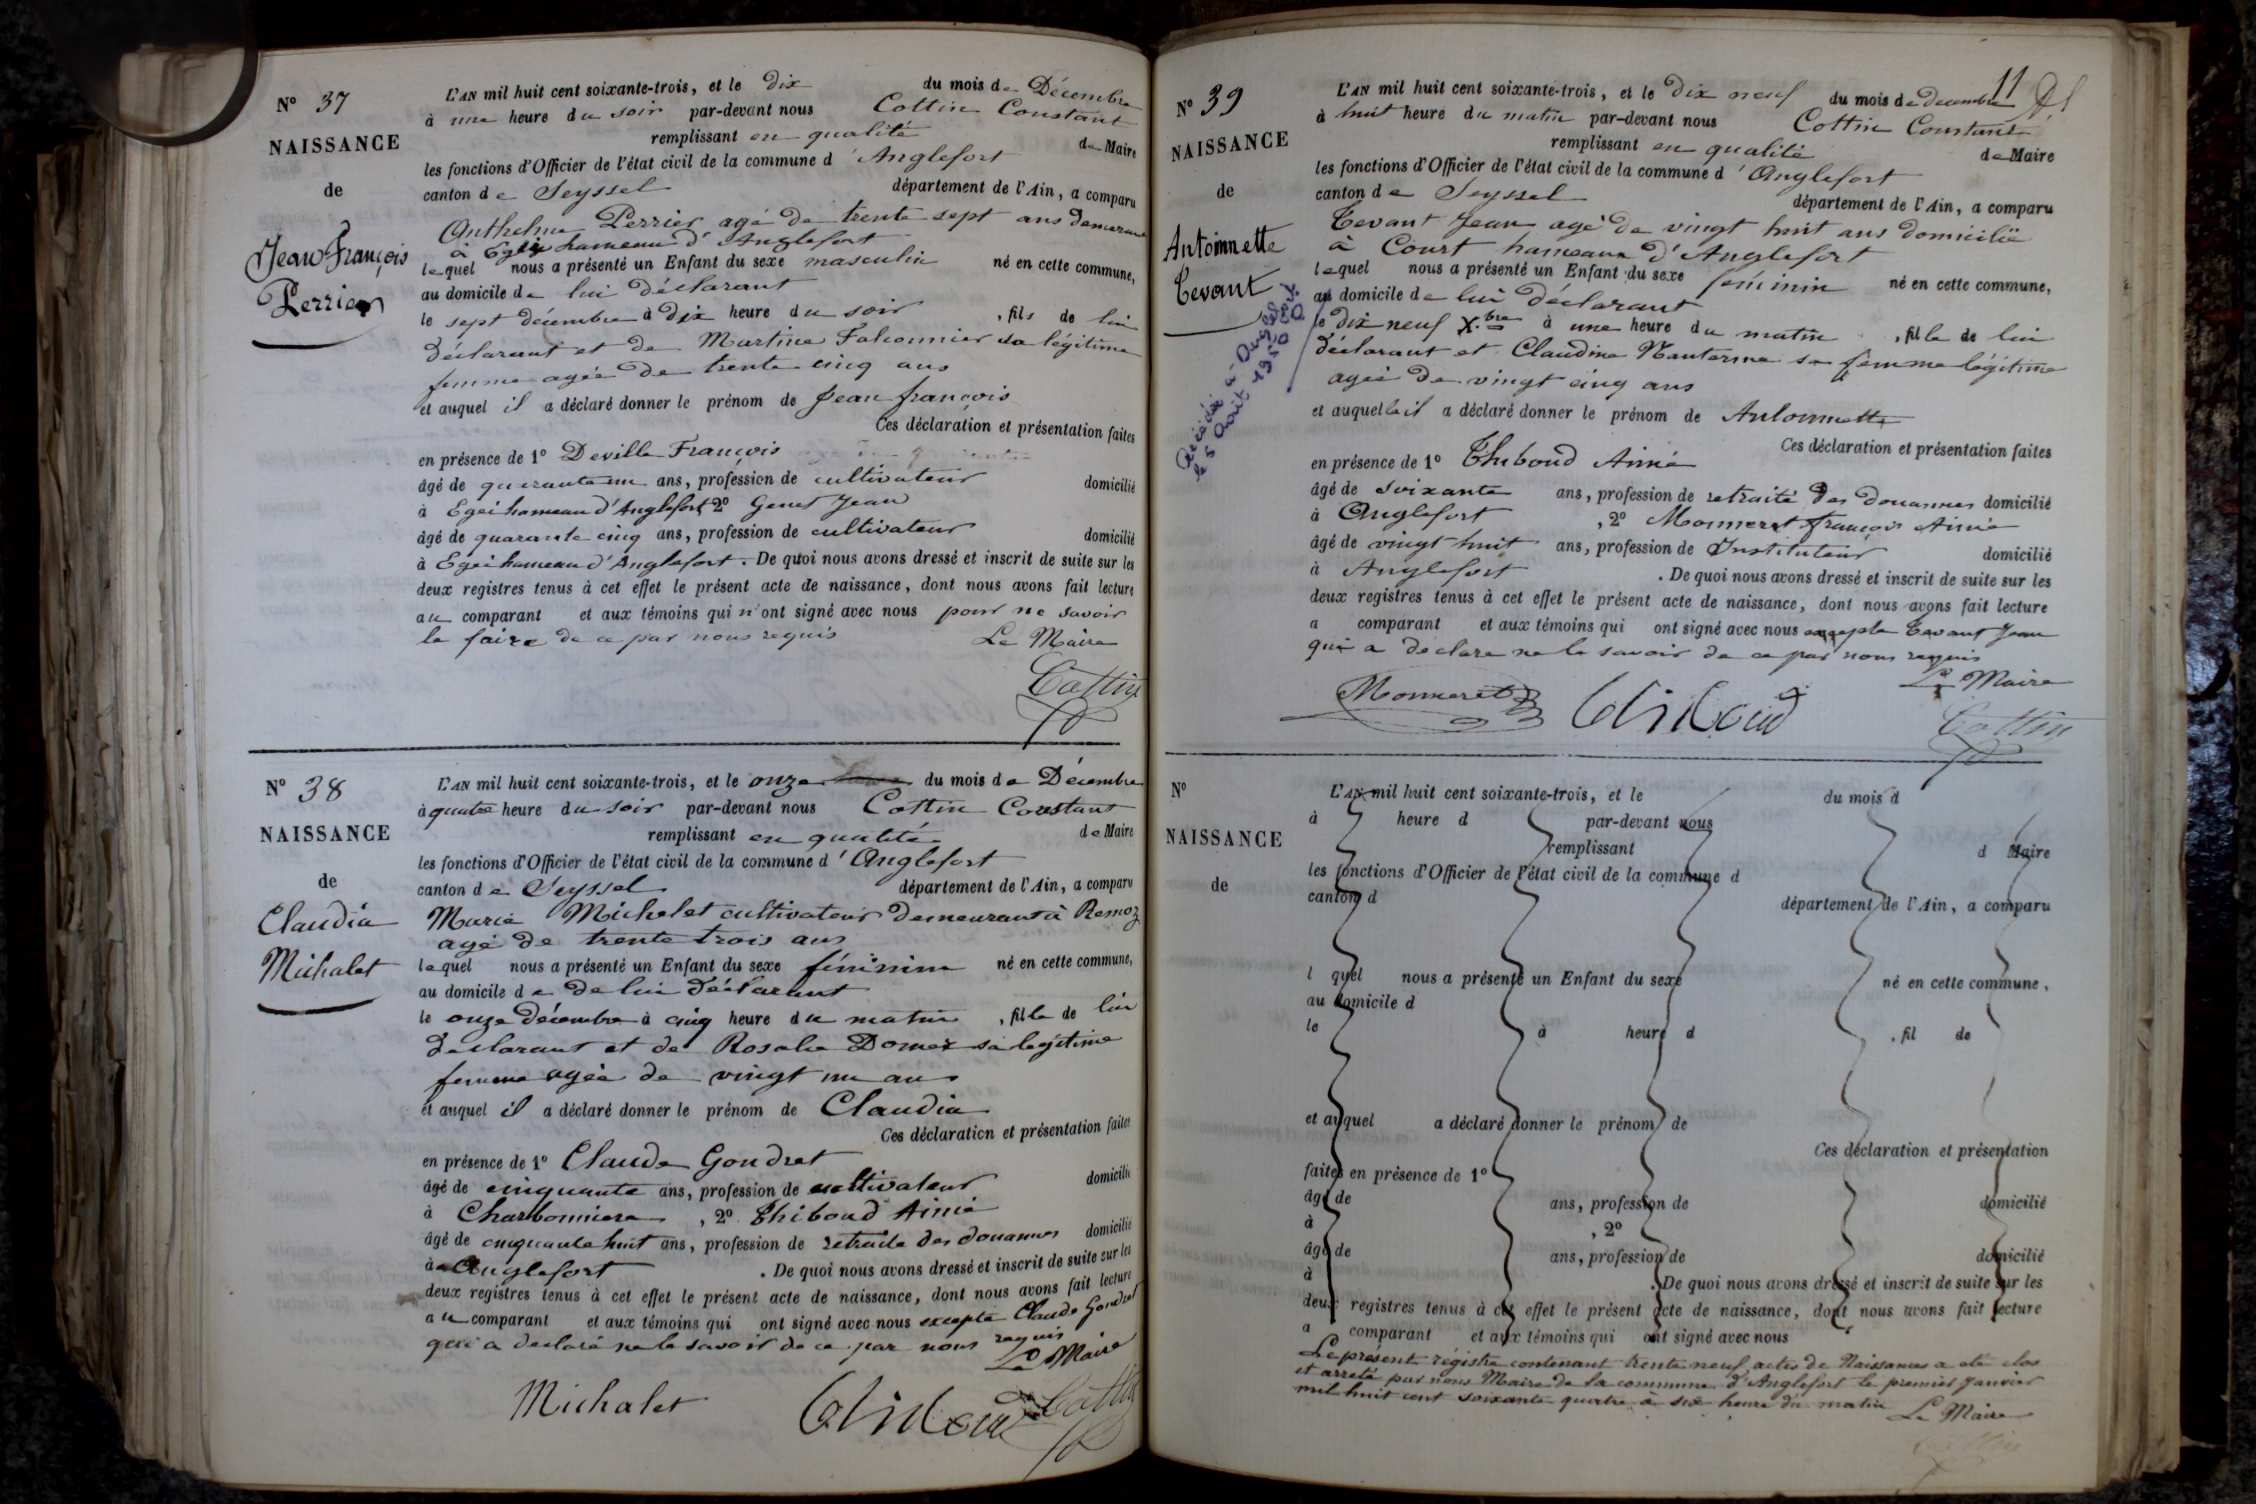 N° 37
NAISSANCE
de
Jean François
Perrier
L'AN mil huit cent soixante-trois, et le dix du mois de Décembre
à une heure du soir par-devant nous Cottin Constant
remplissant en qualité de Maire
les fonctions d'Officier de l'état civil de la commune d'Anglefort
canton de Seyssel département de l'Ain, a comparu
Anthelme Perrier agé de trente sept ans demeurant
à Egei hameau d'Anglefort
lequel nous a présenté un Enfant du sexe masculin né en cette commune,
au domicile de lui déclarant
le sept décembre à dix heure du soir, fils de lui
déclarant et de Martine Falconnier sa légitime
femme agée de trente cinq ans
et auquel il a déclaré donner le prénom de Jean françois
Ces déclaration et présentation faites
en présence de 1° Deville François
âgé de quarante un ans, profession de cultivateur domicilié
à Egei hameau d'Anglefort, 2° Genet Jean
âgé de quarante cinq ans, profession de cultivateur domicilié
à Egei hameau d'Anglefort. De quoi nous avons dressé et inscrit de suite sur les
deux registres tenus à cet effet le présent acte de naissance, dont nous avons fait lecture
au comparant et aux témoins qui n'ont signé avec nous pour ne savoir
le faire de ce par nous requis Le Maire
Cottin
N° 38
NAISSANCE
de
Claudia
Michalet
L'AN mil huit cent soixante-trois, et le onze du mois de Décembre
à quatre heure du soir par-devant nous Cottin Constant
remplissant en qualité de Maire
les fonctions d'Officier de l'état civil de la commune d'Anglefort
canton de Seyssel département de l'Ain, a comparu
Marie Michalet cultivateur demeurant à Remoz
agé de trente trois ans
lequel nous a présenté un Enfant du sexe féminin né en cette commune,
au domicile de de lui déclarant
le onze décembre à cinq heure du matin, fille de lui
déclarant et de Rosalie Domez sa légitime
femme agée de vingt un ans
et auquel il a déclaré donner le prénom de Claudia
Ces déclaration et présentation faites
en présence de 1° Claude Gondret
âgé de cinquante ans, profession de cultivateur domicilié
à Charbonniere, 2° Thiboud Aimé
âgé de cinquante huit ans, profession de retraité des douannes domicilié
à Anglefort. De quoi nous avons dressé et inscrit de suite sur les
deux registres tenus à cet effet le présent acte de naissance, dont nous avons fait lecture
au comparant et aux témoins qui ont signé avec nous excepté Claude Gondret
qui a declaré ne le savoir de ce par nous requis
Le Maire
Michalet Thiboud Cottin
11
N° 39
NAISSANCE
de
Antoinnette
Tevant
Décédée à Angefort
le 5 Août 1950
L'AN mil huit cent soixante-trois, et le dix neuf du mois de decembre
à huit heure du matin par-devant nous Cottin Constant
remplissant en qualité de Maire
les fonctions d'Officier de l'état civil de la commune d'Anglefort
canton de Seyssel département de l'Ain, a comparu
Tevant Jean agé de vingt huit ans domicilié
à Court hameaux d'Anglefort
lequel nous a présenté un Enfant du sexe féminin né en cette commune,
au domicile de lui déclarant
le dix neuf X.bre à une heure du matin, fille de lui
déclarant et Claudine Nanterme sa femme légitime
agée de vingt cinq ans
et auquelle il a déclaré donner le prénom de Antoinnette
Ces déclaration et présentation faites
en présence de 1° Thiboud Aimé
âgé de soixante ans, profession de retraité des douannes domicilié
à Anglefort, 2° Monneret françois Aimé
âgé de vingt huit ans, profession de Instituteur domicilié
à Anglefort. De quoi nous avons dressé et inscrit de suite sur les
deux registres tenus à cet effet le présent acte de naissance, dont nous avons fait lecture
a comparant et aux témoins qui ont signé avec nous excepte Tevant Jean
qui a declare ne le savoir de ce par nous requis
Le Maire
Monneret Thiboud Cottin
N°
NAISSANCE
de
L'AN mil huit cent soixante-trois, et le du mois d
à heure d par-devant nous
remplissant d Maire
les fonctions d'Officier de l'état civil de la commune d
canton d département de l'Ain, a comparu
l quel nous a présenté un Enfant du sexe né en cette commune,
au domicile d
le à heure d , fil de
et auquel a déclaré donner le prénom de
Ces déclaration et présentation
faites en présence de 1°
âgé de ans, profession de domicilié
à , 2°
âgé de ans, profession de domicilié
à . De quoi nous avons dressé et inscrit de suite sur les
deux registres tenus à cet effet le présent acte de naissance, dont nous avons fait lecture
a comparant et aux témoins qui ont signé avec nous
Le présent régistre contenant trente neuf actes de Naissances a été clos
et arreté par nous Maire de la commune d'Anglefort le premier Janvier
mil huit cent soixante quatre à six heure du matin Le Maire
Cottin